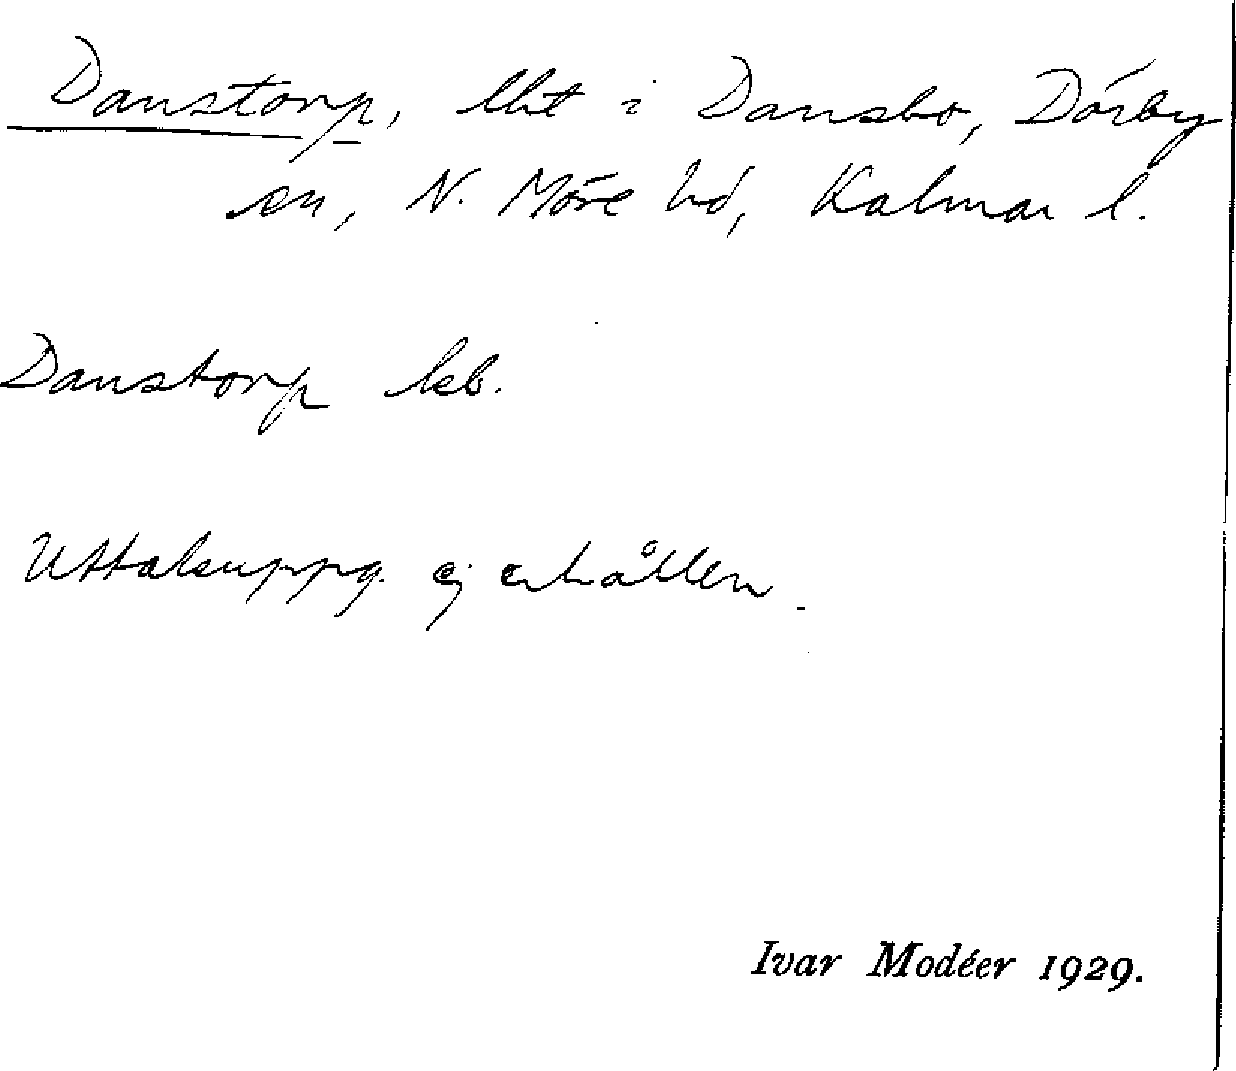 Danstorp, lht i Dansbo, Dörby
sn, N. Möre hd, Kalmar l.
Danstorp kb.
Uttalsuppg. ej erhållen.
Ivar Modéer 1929.